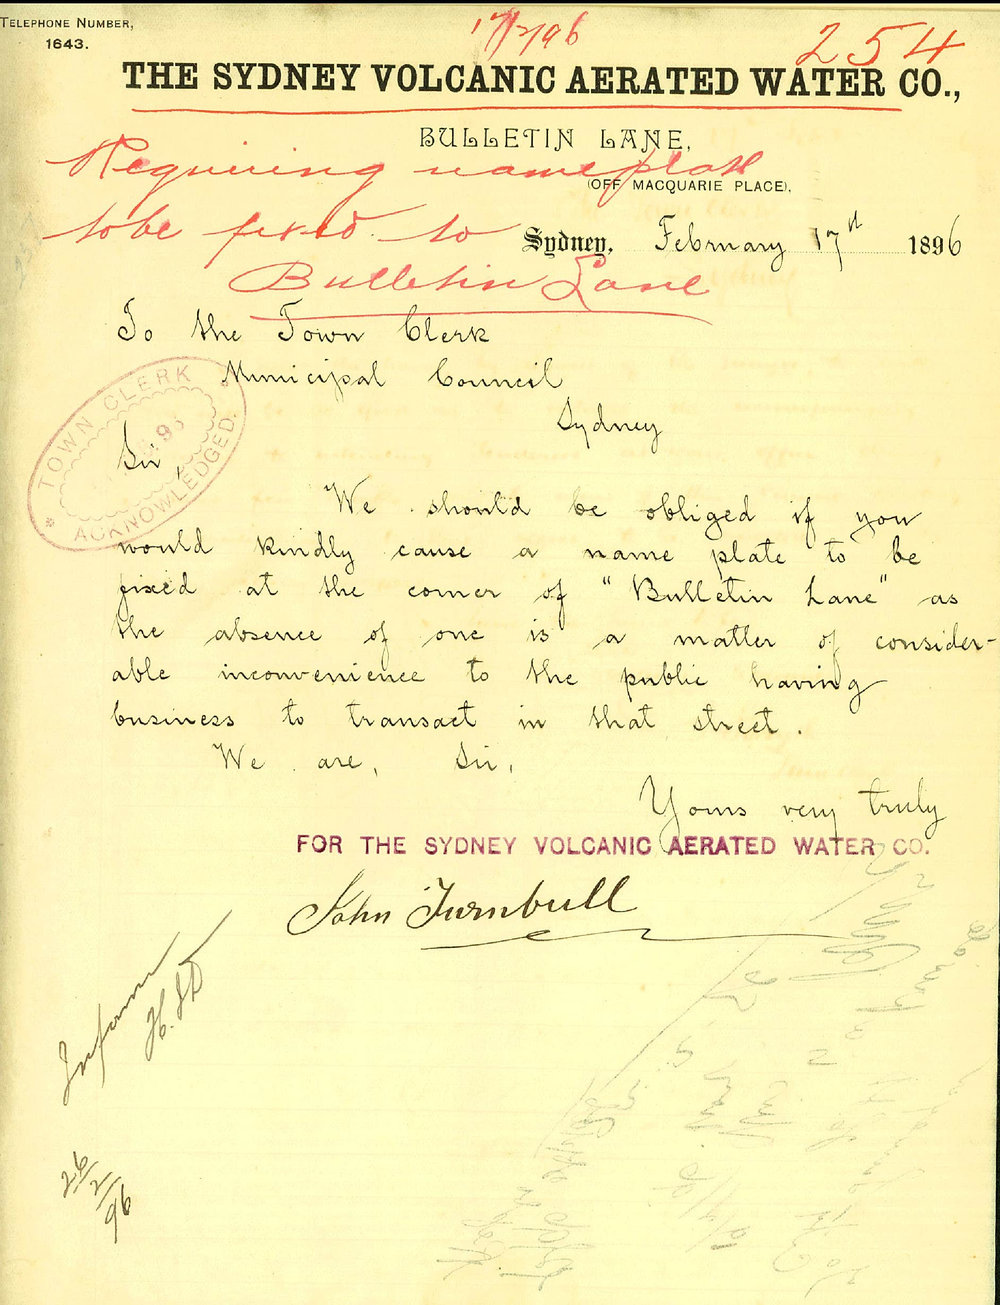 TELEPHONE NUMBER,
1643.
17/2/96
254
THE SYDNEY VOLCANIC AERATED WATER CO.,
BULLETIN LANE,
(OFF MACQUARIE PLACE).
Requiring name plate
to be fixed to
Bulletin Lane
Sydney, February 17th 1896
To the Town Clerk
Municipal Council
Sydney
TOWN CLERK
ACKNOWLEDGED.
Sir,
We should be obliged if you
would kindly cause a name plate to be
fixed at the corner of "Bulletin Lane" as
the absence of one is a matter of consider-
able inconvenience to the public having
business to transact in that street.
We are, Sir,
Yours very truly
FOR THE SYDNEY VOLCANIC AERATED WATER CO.
John Turnbull
Inform
26/2/96